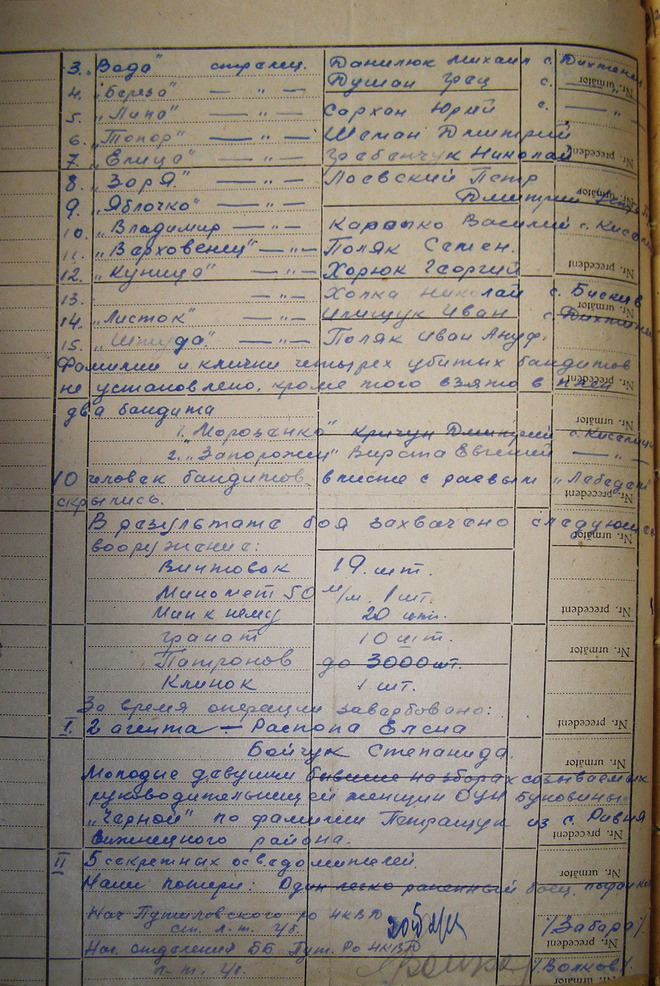 3. "Вода" стрелец. Данилюк Михаил с. Дихтенец
4. "Береза" — " — Душан Грац с.
5. "Липа" — " — Сархан Юрий с. — " —
6. "Топор" — " — Шеман Дмитрий
7. "Елица" — " — Грабанчук Николай
8. "Зоря" — " — Лоевский Петр
9. "Яблочко" — " — Дмитрий
10. "Владимир — " — Карапко Василий с.
11. "Верховенец" — " — Поляк Семен.
12. "Куница" — " — Хорюк Георгий
13. — " — Хопка Николай с. Бисков
14. "Листок" — " — Илищук Иван с.
15. — " — Поляк Иван Ануф.
Фамилии и клички четырех убитых бандитов
не установлено, кроме того взято в плен
два бандита
1. "Морозенко" Кричун Дмитрий с. Киселицы
2. "Запорожец" Вирста Евгений — " —
10 человек бандитов вместе с раевым "Лебедем"
скрылись.
В результате боя захвачено следующее
вооружение:
Винтовок 19. шт.
Миномет 50 м/м. 1 шт.
Мин к нему 20 шт.
Гранат 10 шт.
Патронов до 3000 шт.
Клинок 1 шт.
За время операции завербовано:
I. 2 агента — Распопа Елена
Бойчук Степанида.
Молодые девушки бывшие на сборах созываемых
руководительницей женщин ОУН Буковины
"Черной" по фамилии Петращук из с. Ровня
Вижницкого района.
II 5 секретных осведомителей.
Наши потери: Один легко раненный боец.
Нач Путиловского ро НКВД
ст. л-т. г/б. /Забара/.
Нач. отделения ББ Пут. Ро НКВД
л-т. г/б. /Волков/.
Nr. următor
Nr. precedent
Nr. următor
Nr. precedent
Nr. următor
Nr. precedent
Nr. următor
Nr. precedent
Nr. următor
Nr. precedent
Nr. următor
Nr. precedent
Nr. următor
Nr. precedent
Nr. următor
Nr. precedent
Nr. următor
Nr. precedent